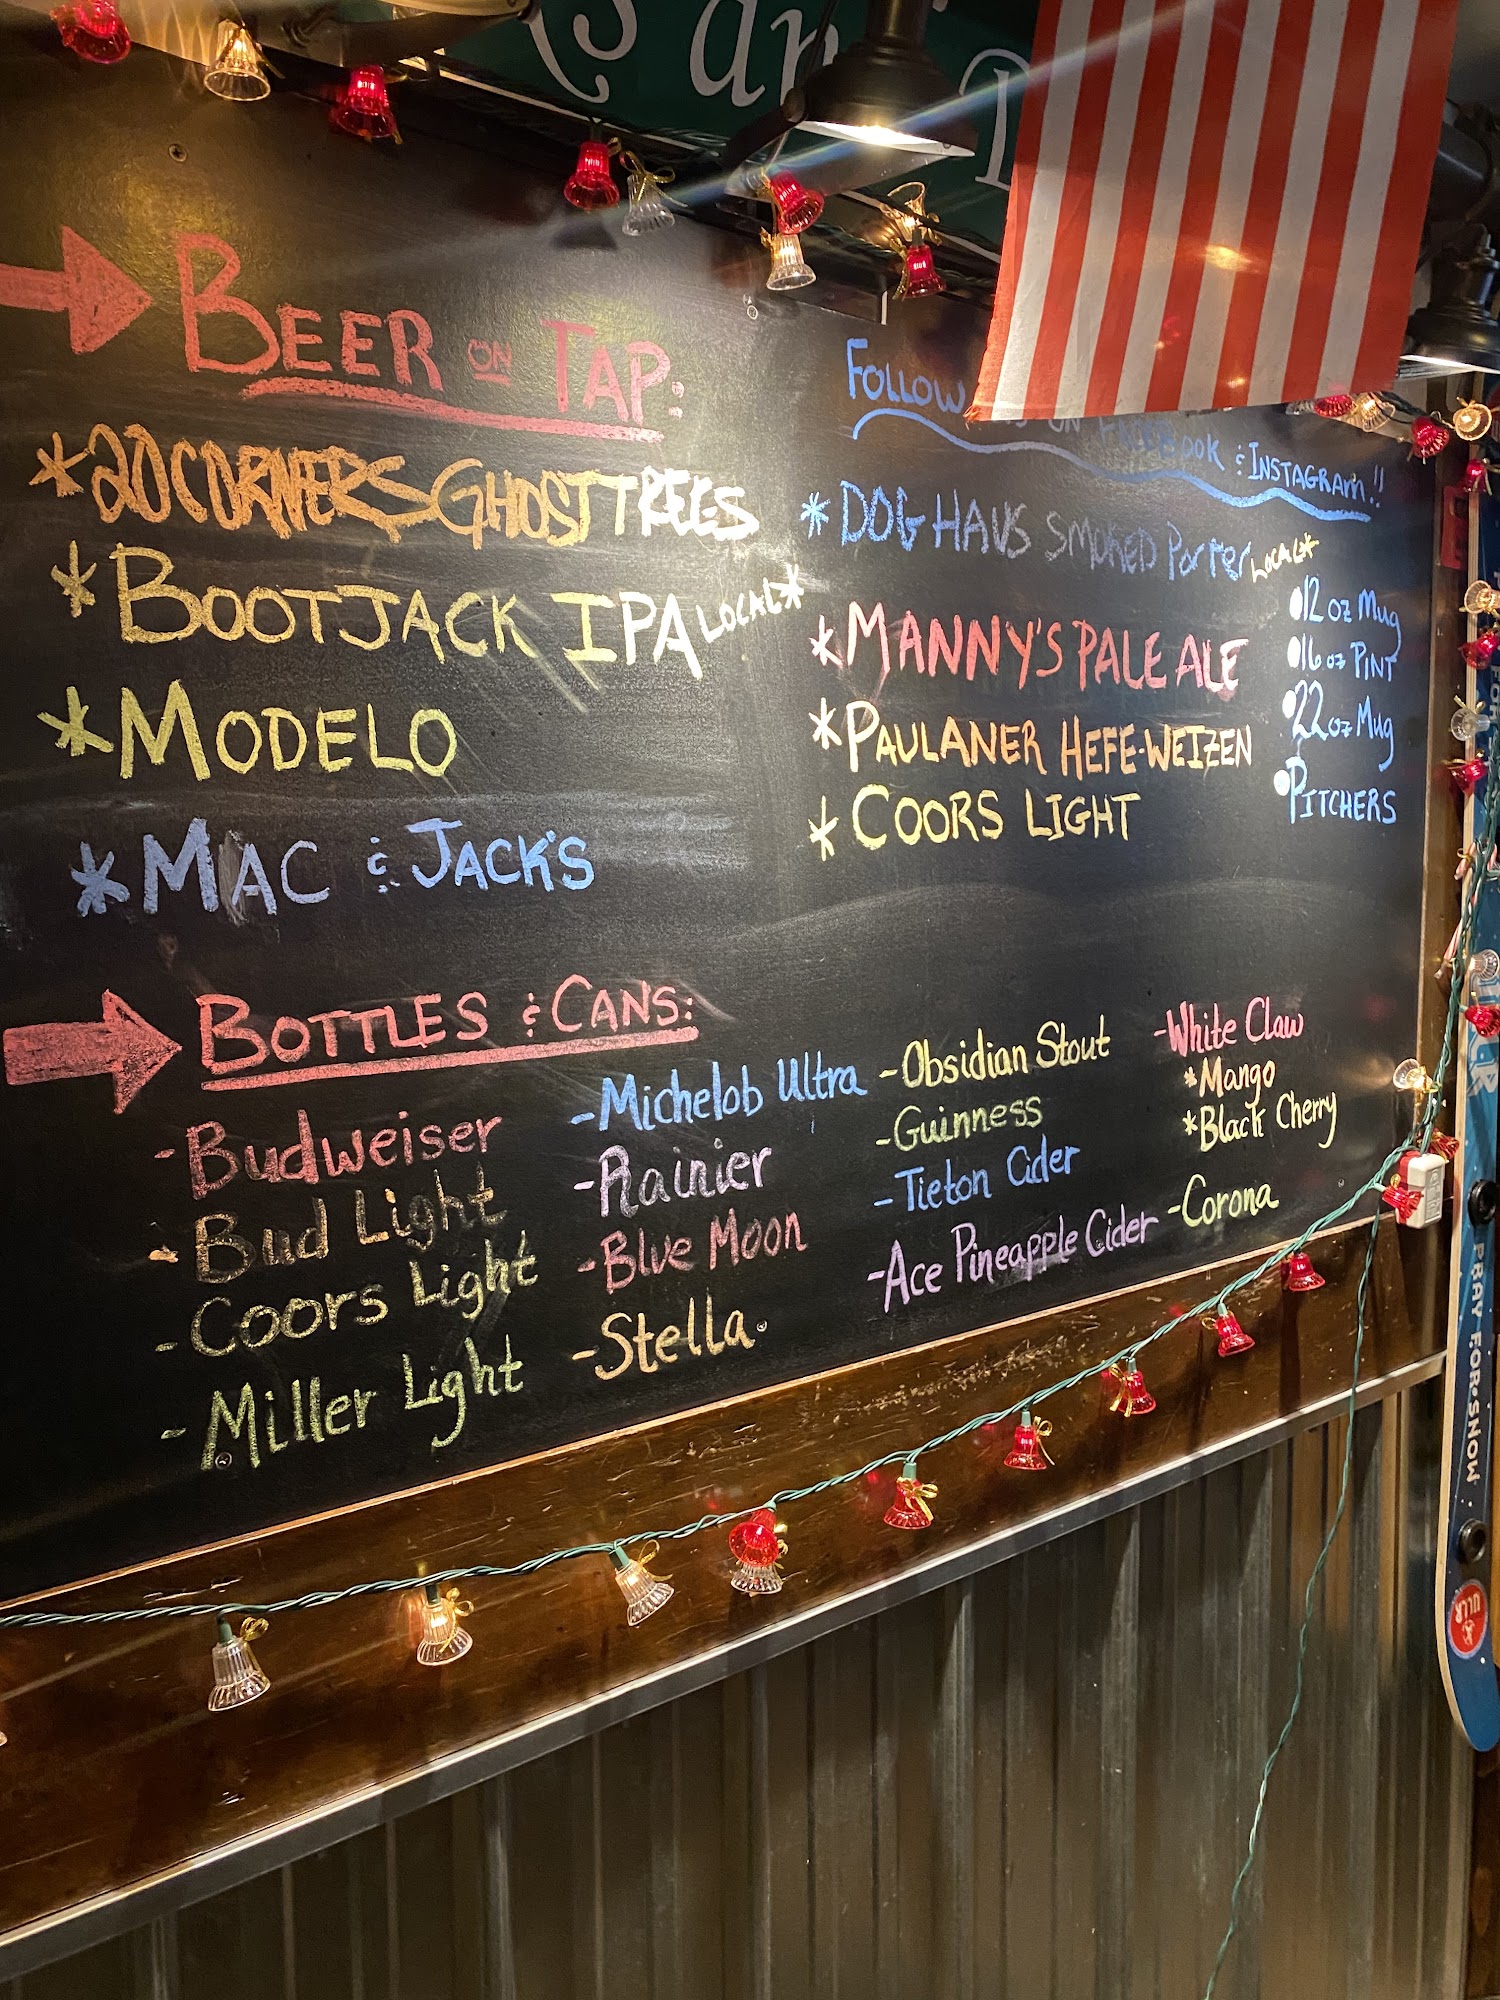 BEER ON TAP:
*20 CORNERS GHOST TREES
*BOOTJACK IPA LOCAL*
*MODELO
*MAC & JACK'S
FOLLOW ON FACEBOOK & INSTAGRAM!!
*DOG HAUS SMOKED PORTER LOCAL*
*MANNY'S PALE ALE
*PAULANER HEFE-WEIZEN
*COORS LIGHT
•12 oz Mug
•16 oz PINT
•22 oz Mug
•PITCHERS
BOTTLES & CANS:
-Budweiser
-Bud Light
-Coors Light
-Miller Light
-Michelob Ultra
-Rainier
-Blue Moon
-Stella
-Obsidian Stout
-Guinness
-Tieton Cider
-Ace Pineapple Cider
-White Claw
*Mango
*Black Cherry
-Corona
PRAY FOR SNOW